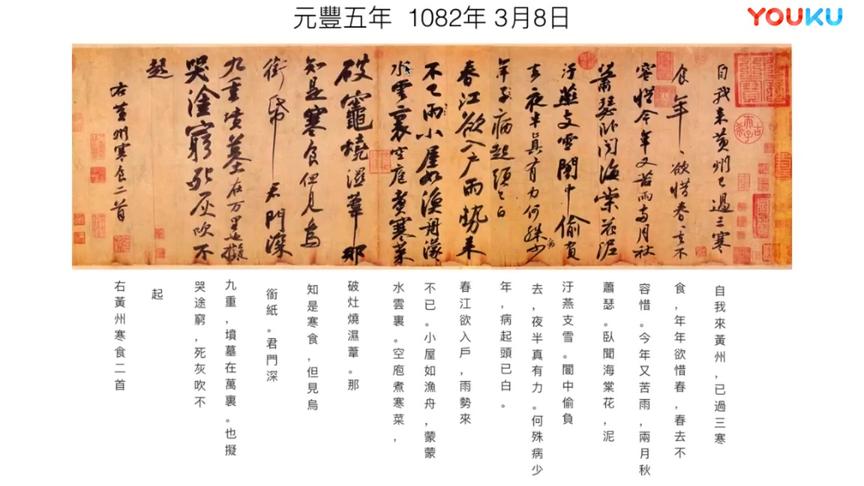 元豐五年 1082年 3月8日
YOUKU
自我来黃州已過三寒
食年〻欲惜春〻去不
容惜今年又苦雨兩月秋
蕭瑟卧聞海棠花泥
汙燕支雪闇中偷負
去夜半真有力何殊少
年子病起頭已白
春江欲入户雨勢来
不已雨小屋如漁舟濛〻
水雲裏空庖煑寒菜
破竈燒濕葦那
知是寒食但見烏
銜帋君門深
九重墳墓在万里也擬
哭塗窮死灰吹不
起
右黃州寒食二首
自我來黃州,已過三寒
食,年年欲惜春,春去不
容惜。今年又苦雨,兩月秋
蕭瑟。臥聞海棠花,泥
汙燕支雪。闇中偷負
去,夜半真有力。何殊病少
年,病起頭已白。
春江欲入戶,雨勢來
不已。小屋如漁舟,蒙蒙
水雲裏。空庖煮寒菜,
破灶燒濕葦。那
知是寒食,但見烏
銜紙。君門深
九重,墳墓在萬裏。也擬
哭途窮,死灰吹不
起
右黃州寒食二首